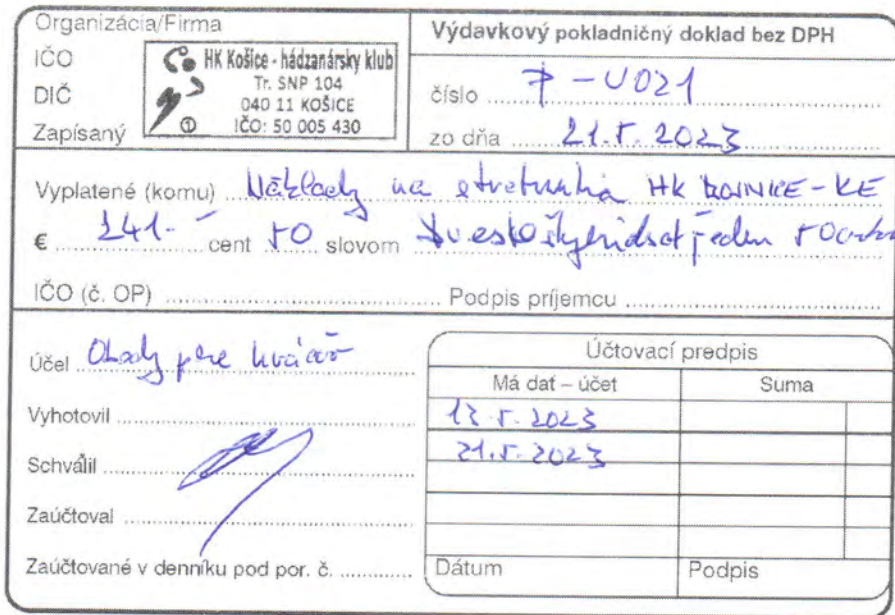 Organizácia/Firma
IČO
DIČ
Zapísaný
HK Košice - hádzanársky klub
Tr. SNP 104
040 11 KOŠICE
IČO: 50 005 430
①
Výdavkový pokladničný doklad bez DPH
číslo P-U021
zo dňa 21.5.2023
Vyplatené (komu) Náklady na stretnutia HK BOJNICE-KE
€ 241.- cent 50 slovom
IČO (č. OP) Podpis príjemcu
Účel Obedy pre hráčov
Vyhotovil
Schválil
Zaúčtoval
Zaúčtované v denníku pod por. č.
Účtovací predpis
Má dať – účet Suma
13.5.2023
21.5.2023
Dátum Podpis